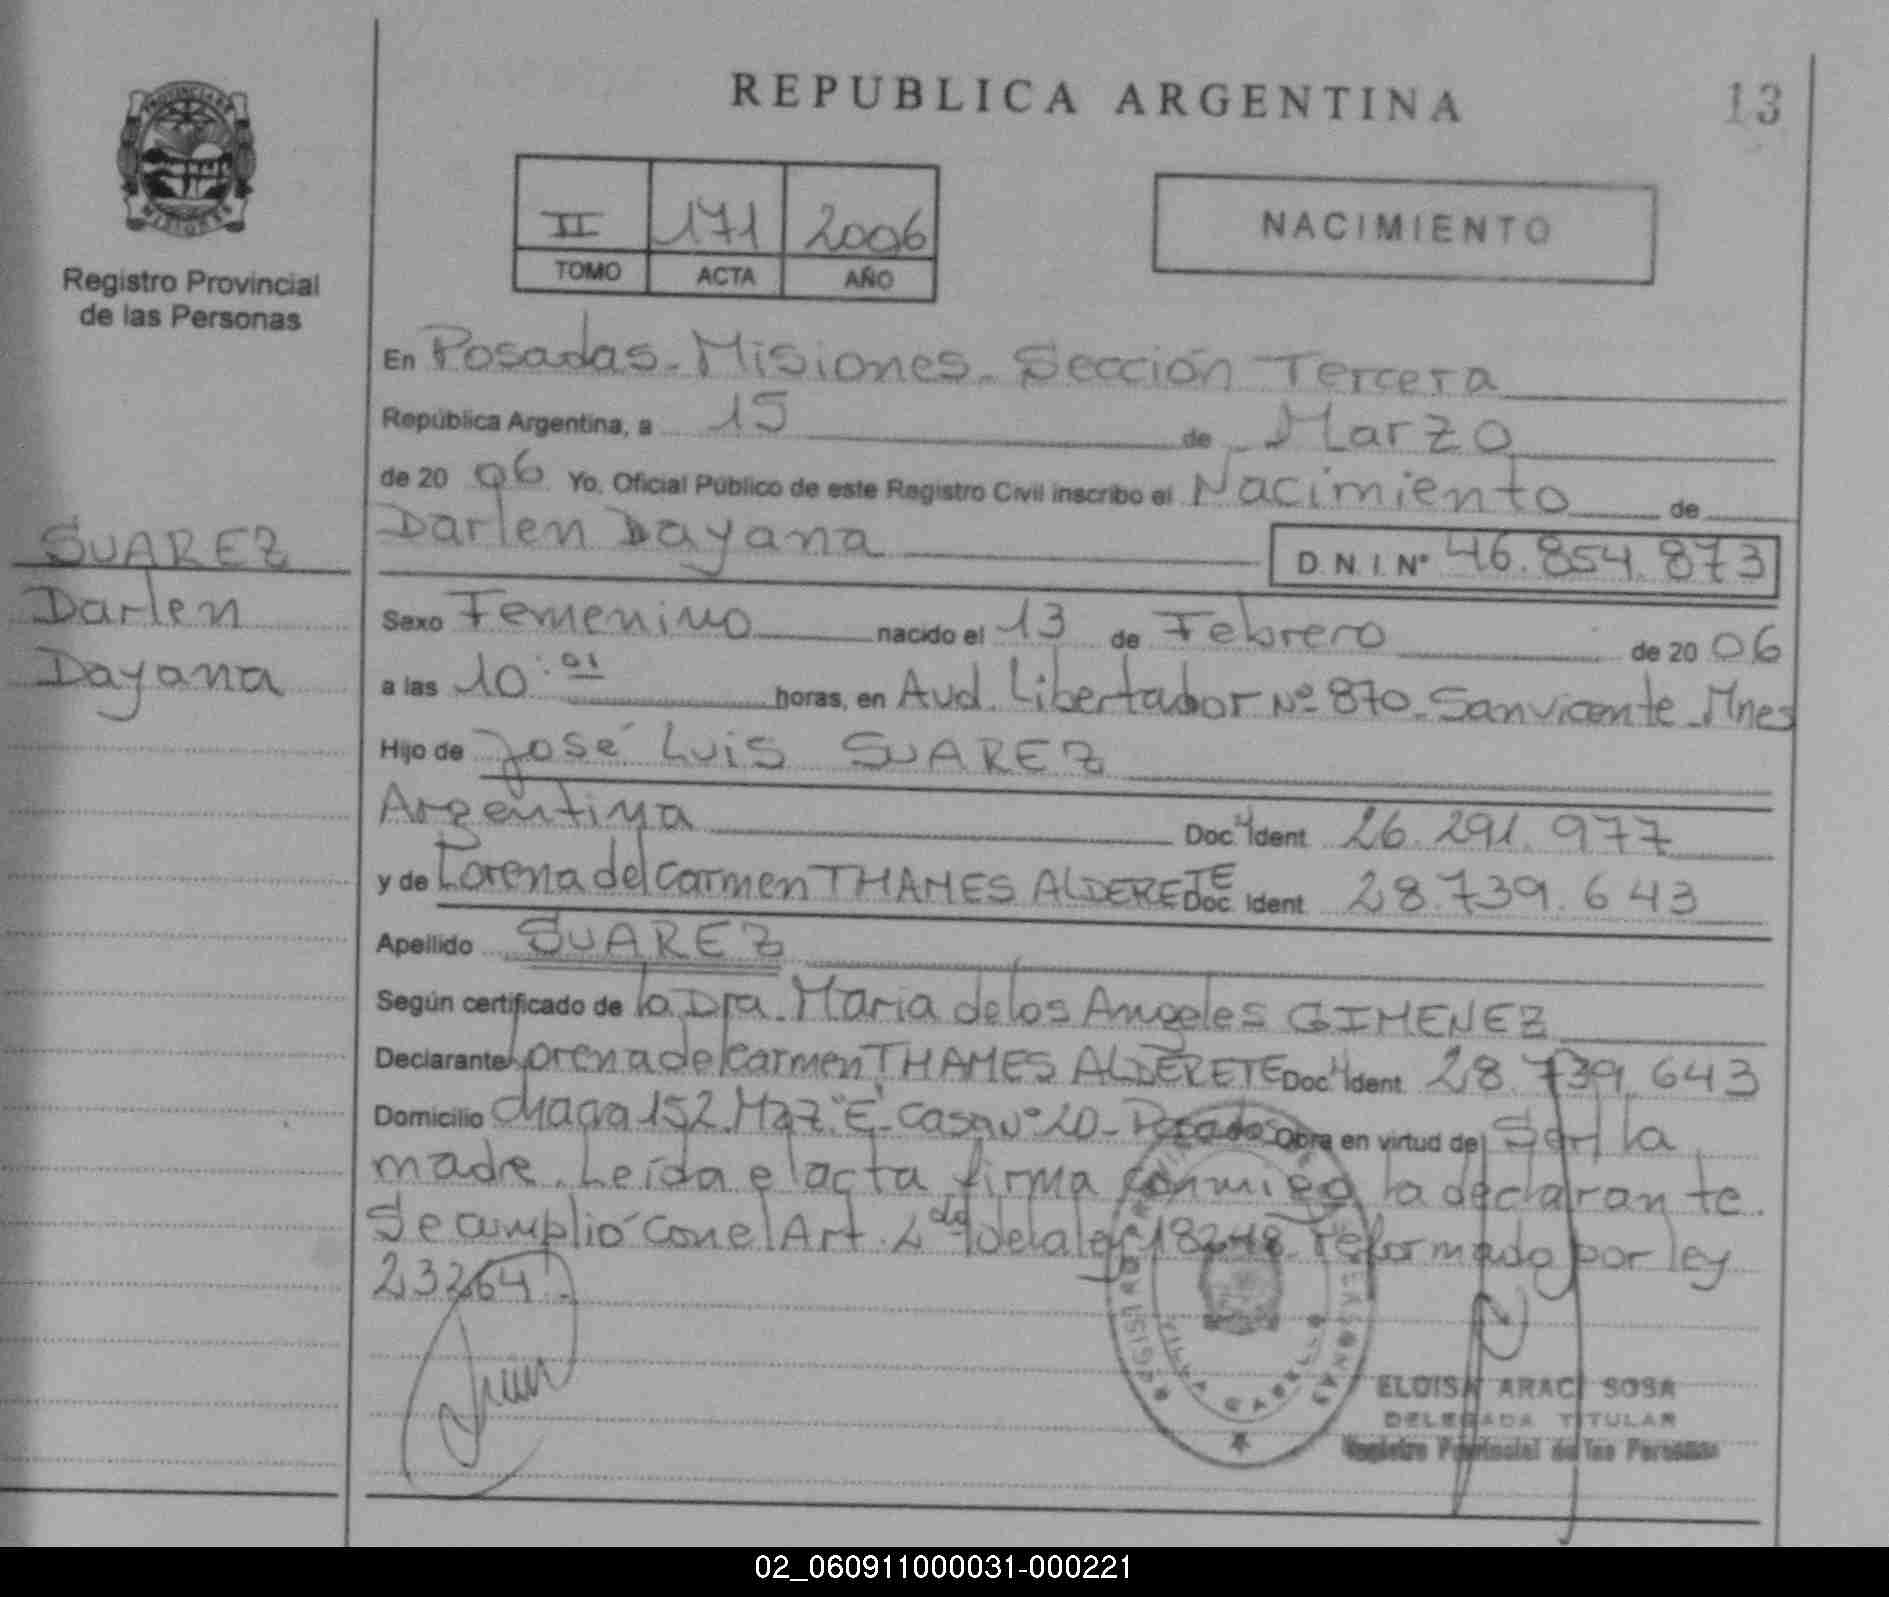 REPUBLICA ARGENTINA
13
PROVINCIA DE
MISIONES
Registro Provincial
de las Personas
II 171 2006
TOMO ACTA AÑO
NACIMIENTO
En Posadas - Misiones - Sección Tercera
República Argentina, a 15 de Marzo
de 20 06 Yo, Oficial Público de este Registro Civil inscribo el Nacimiento de
Darlen Dayana D.N.I. Nº 46.854.873
SUAREZ
Darlen
Dayana
Sexo Femenino nacido el 13 de Febrero de 20 06
a las 10:01 horas, en Avd. Libertador Nº 870 - San Vicente - Mnes
Hijo de José Luis SUAREZ
Argentina Doc. Ident. 26.291.977
y de Lorena del Carmen THAMES ALDERETE Doc. Ident. 28.739.643
Apellido SUAREZ
Según certificado de la Dra. Maria de los Angeles GIMENEZ
Declarante Lorena del Carmen THAMES ALDERETE Doc. Ident. 28.739.643
Domicilio Chacra 152. Mz 7. "E" - Casa Nº 20 - Posadas Obra en virtud de Ser la
madre. Leída el acta firma conmigo la declarante.
Se cumplió con el Art. 2do de la ley 18248 reformado por ley
23264.
ELOISA ARACI SOSA
DELEGADA TITULAR
Registro Provincial de las Personas
VILLA CABELLO
02_060911000031-000221